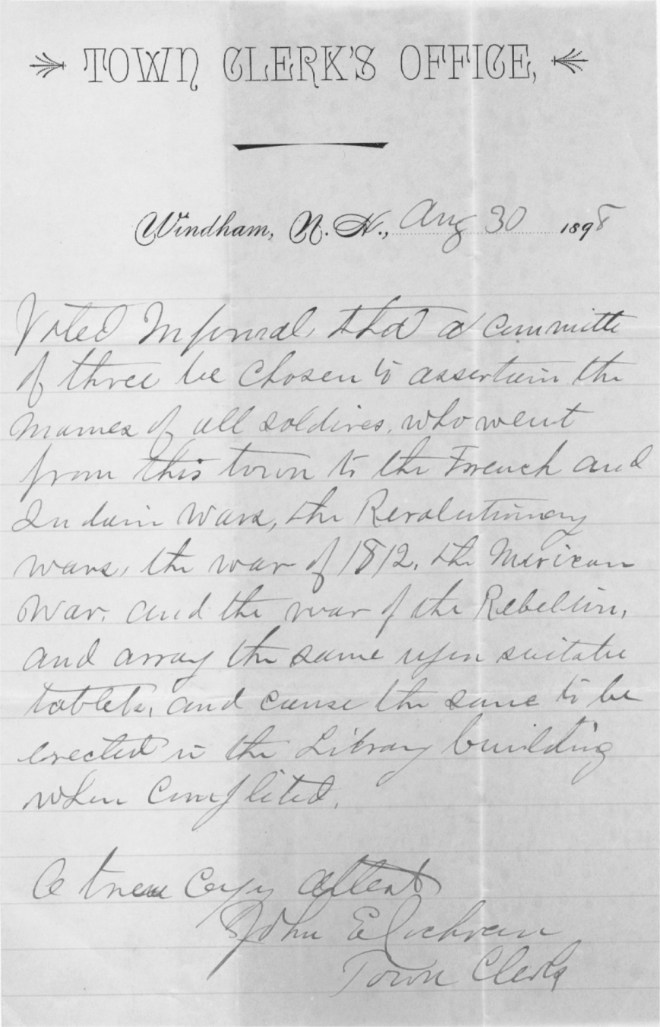 TOWN CLERK'S OFFICE,
Windham, N. H., Aug 30 1898
Voted Informal, that a committe
of three be chosen to assertain the
names of all soldires, who went
from this town to the French and
Indain wars, the Revolutionary
wars, the war of 1812, the Mexican
War, and the war of the Rebellion,
and array the same upon suitable
tablets, and cause the same to be
erected in the Library building
when Complited.
A true Copy attest
John E Cochran
Town Clerk